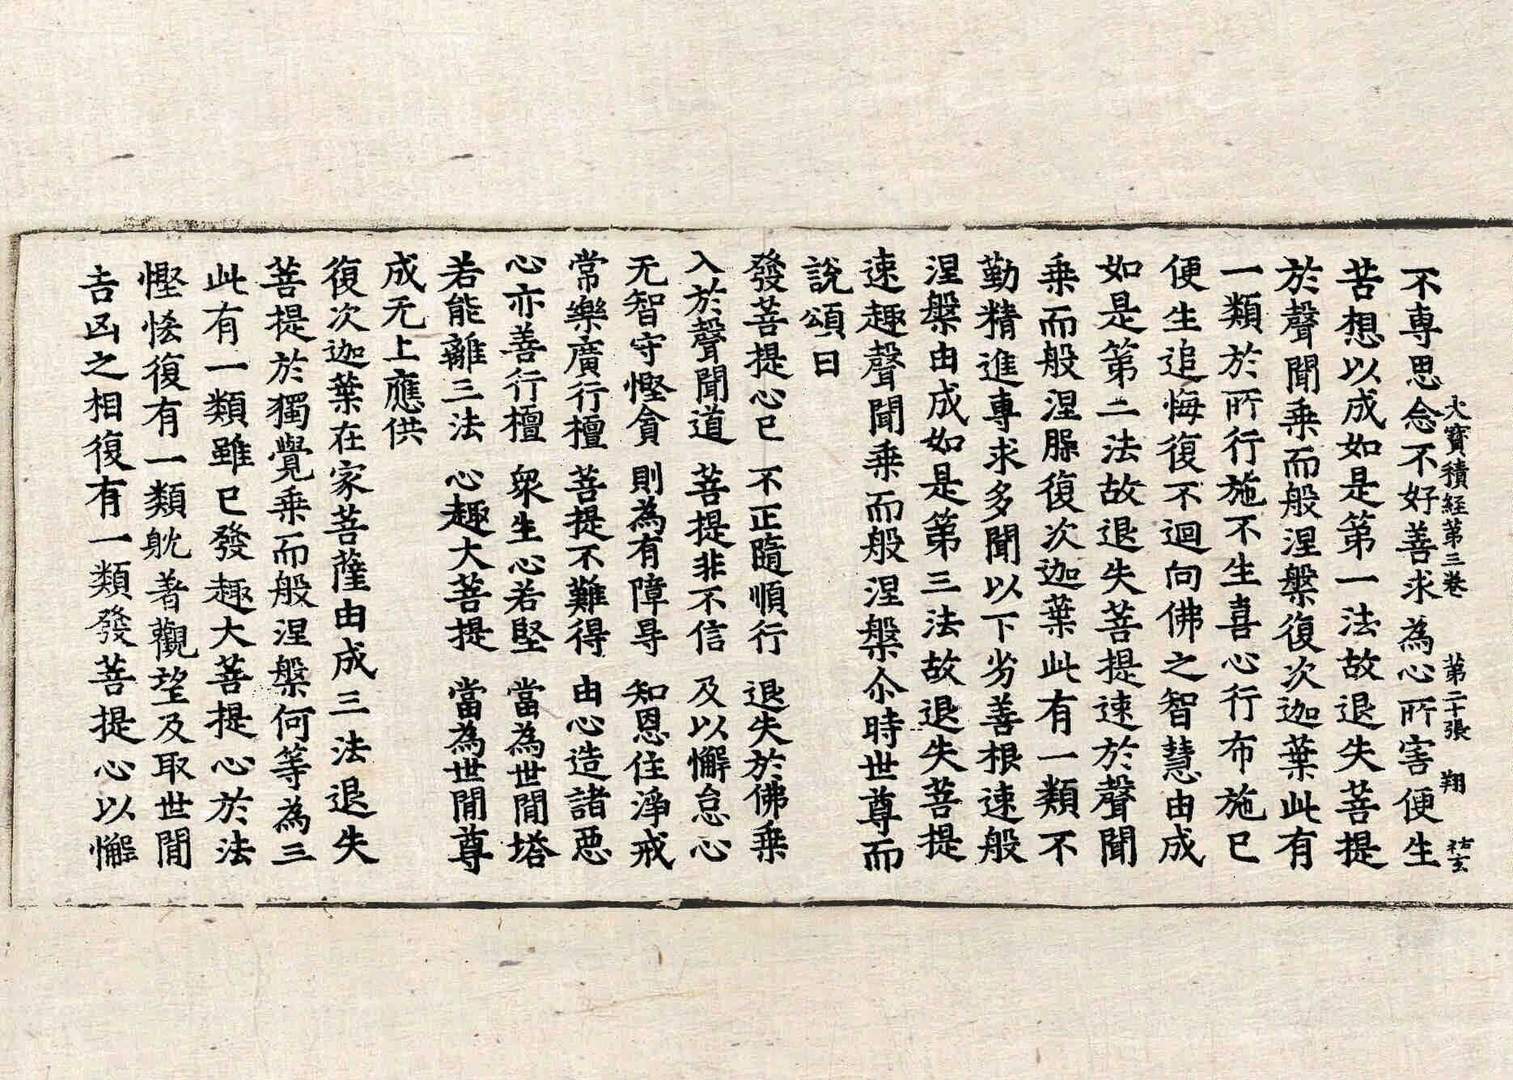 大寶積経第三卷 第二十張 翔 祐玄
不専思念不好善求為心所害便生
苦想以成如是第一法故退失菩提
於聲聞乗而般涅槃復次迦葉此有
一類於所行施不生喜心行布施已
便生追悔復不迴向佛之智慧由成
如是第二法故退失菩提速於聲聞
乗而般涅槃復次迦葉此有一類不
勤精進専求多聞以下劣善根速般
涅槃由成如是第三法故退失菩提
速趣聲聞乗而般涅槃尒時世尊而
説頌曰
發菩提心已 不正隨順行 退失於佛乗
入於聲聞道 菩提非不信 及以懈怠心
无智守慳貪 則為有障㝵 知恩住淨戒
常樂廣行檀 菩提不難得 由心造諸惡
心亦善行檀 衆生心若堅 當為世間塔
若能離三法 心趣大菩提 當為世間尊
成无上應供
復次迦葉在家菩薩由成三法退失
菩提於獨覺乗而般涅槃何等為三
此有一類雖已發趣大菩提心於法
慳悋復有一類躭著觀望及取世間
吉凶之相復有一類發菩提心以懈